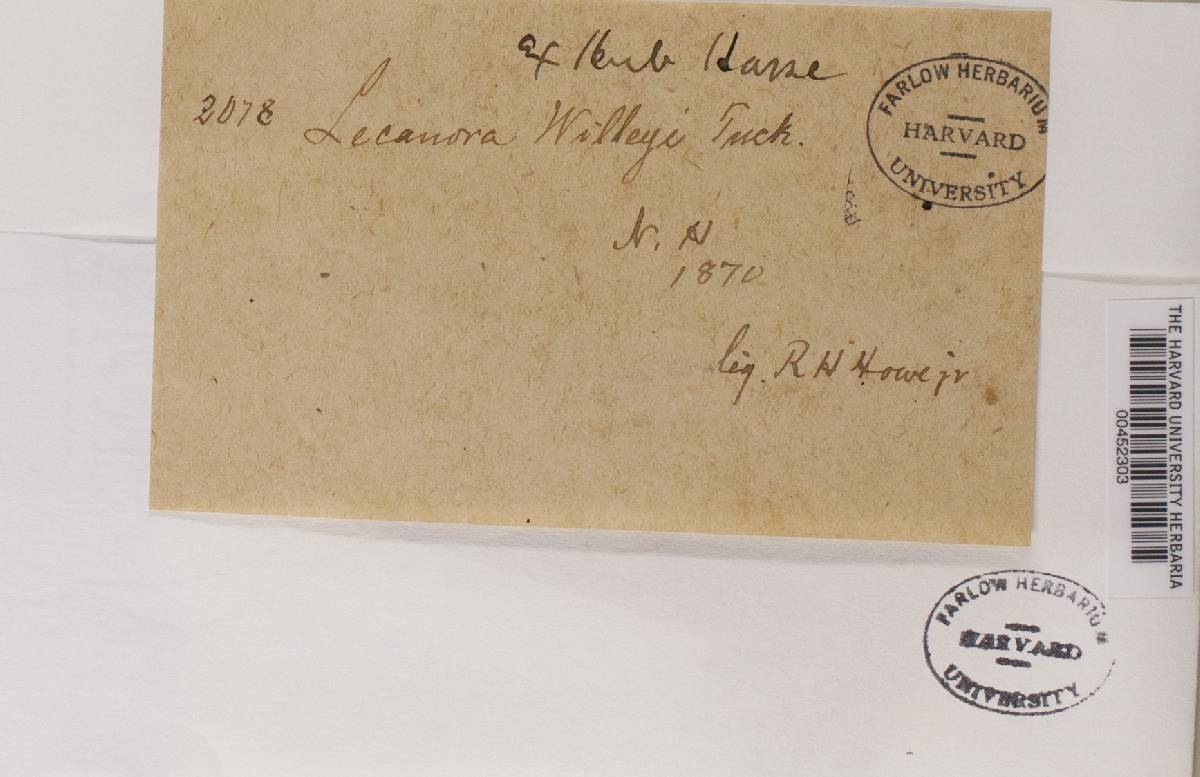 ex Herb Hasse
2078 Lecanora Willeyi Tuck.
N. H
1870
leg. R H Howe jr
FARLOW HERBARIUM
HARVARD
UNIVERSITY
THE HARVARD UNIVERSITY HERBARIA
00452303
FARLOW HERBARIUM
HARVARD
UNIVERSITY